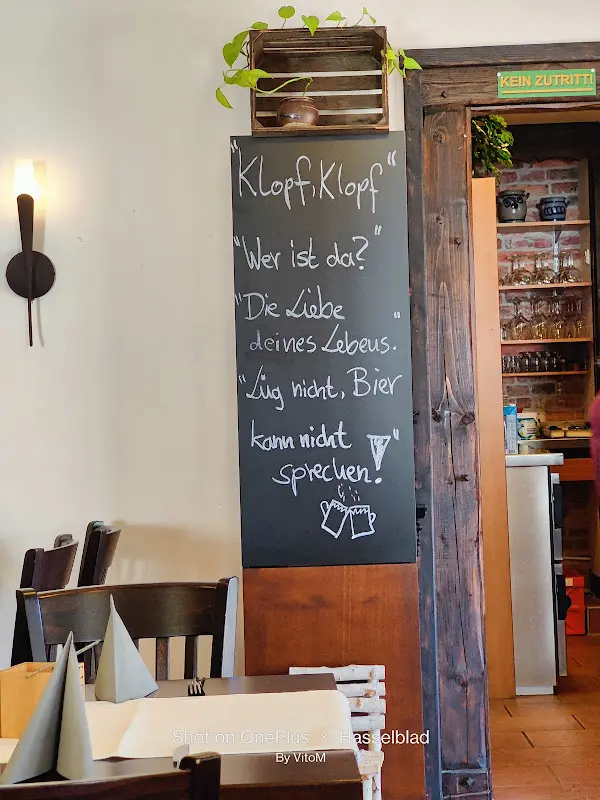 KEIN ZUTRITT!
"Klopf, Klopf"
"Wer ist da?"
"Die Liebe
deines Lebens."
"Lüg nicht, Bier
kann nicht
sprechen!"
Shot on OnePlus × Hasselblad
By VitoM